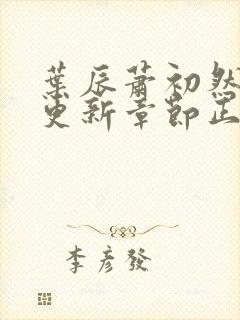 葉辰蕭初然
更新章節正
李彥發